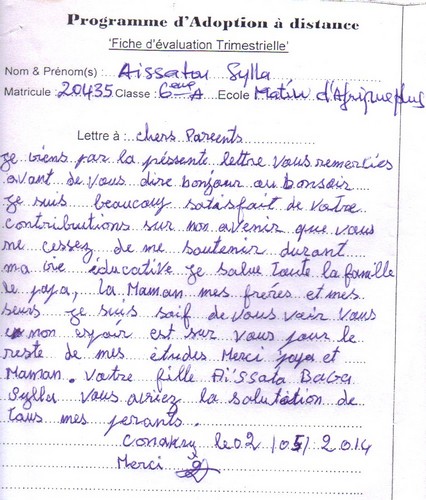 Programme d'Adoption à distance
'Fiche d'évaluation Trimestrielle'
Nom & Prénom(s) : Aissatou Sylla
Matricule : 20435 Classe : 6ème A Ecole Matin d'Afrique plus
Lettre à : chers Parents
Je viens par la présente lettre vous remerties
avant de vous dire bonjour au bonsoir
Je suis beaucoup satisfait de votre
contributions sur mon avenir que vous
ne cessez de me soutenir durant
ma vie éducative je salue toute la famille
le papa, la Maman mes frères et mes
seurs je suis soif de vous voir vous
mon espoir est sur vous pour le
reste de mes études Merci papa et
Maman. Votre fille Aissata
Sylla vous avriez la salutation de
tous mes parants.
Conakry le 02 /05/ 2014
Merci